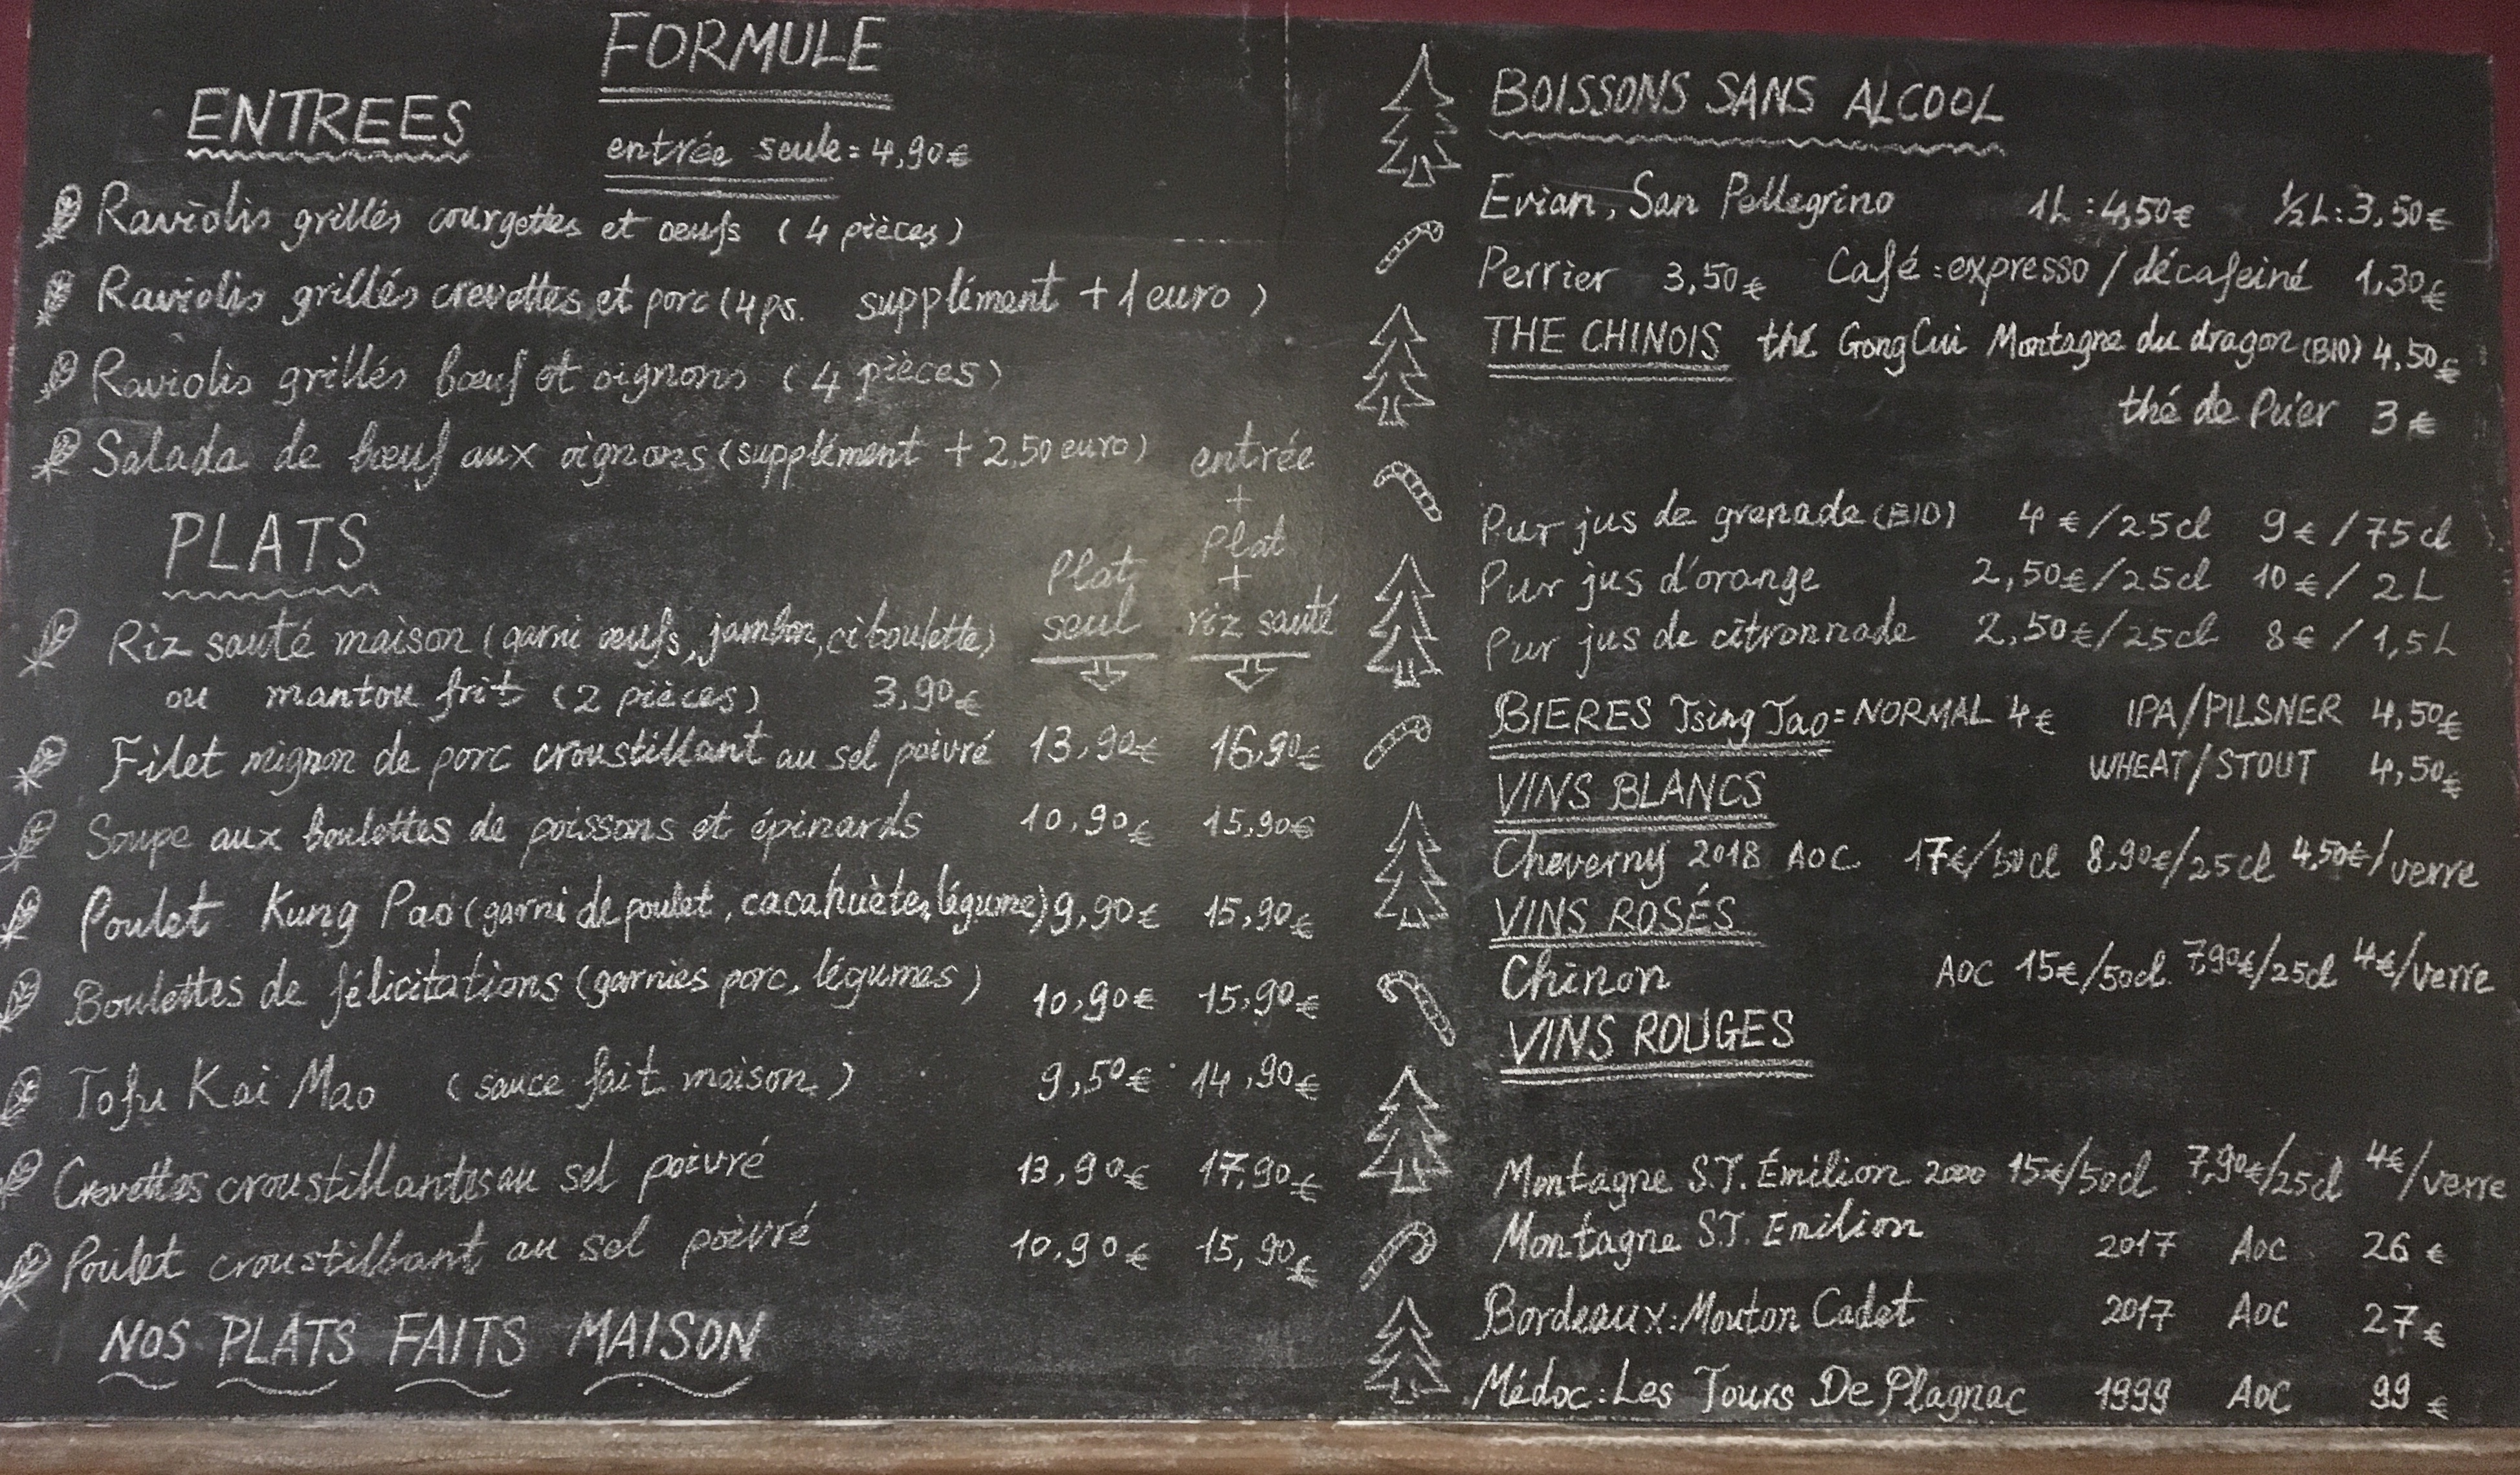 FORMULE
ENTREES
entrée seule = 4,90€
Raviolis grillés courgettes et oeufs (4 pièces)
Raviolis grillés crevettes et porc (4 ps. supplément +1 euro)
Raviolis grillés bœuf et oignons (4 pièces)
Salade de bœuf aux oignons (supplément +2,50 euro)
PLATS
Plat seul
entrée + Plat + riz sauté
Riz sauté maison (garni œufs, jambon, ciboulette)
ou mantou frit (2 pièces) 3,90€
Filet mignon de porc croustillant au sel poivré 13,90€ 16,90€
Soupe aux boulettes de poissons et épinards 10,90€ 15,90€
Poulet Kung Pao (garni de poulet, cacahuètes, légume) 9,90€ 15,90€
Boulettes de félicitations (garnies porc, légumes) 10,90€ 15,90€
Tofu Kai Mao (sauce fait maison) 9,50€ 14,90€
Crevettes croustillantes au sel poivré 13,90€ 17,90€
Poulet croustillant au sel poivré 10,90€ 15,90€
NOS PLATS FAITS MAISON
BOISSONS SANS ALCOOL
Evian, San Pellegrino 1L : 4,50€ ½L : 3,50€
Perrier 3,50€ Café : expresso / décafeiné 1,30€
THE CHINOIS thé GongCui Montagne du dragon (BIO) 4,50€
thé de Pu'er 3€
Pur jus de grenade (BIO) 4€/25cl 9€/75cl
Pur jus d'orange 2,50€/25cl 10€/2L
Pur jus de citronnade 2,50€/25cl 8€/1,5L
BIERES Tsing Tao = NORMAL 4€ IPA/PILSNER 4,50€
WHEAT/STOUT 4,50€
VINS BLANCS
Cheverny 2018 AOC 17€/50cl 8,90€/25cl 4,50€/verre
VINS ROSÉS
Chinon AOC 15€/50cl 7,90€/25cl 4€/verre
VINS ROUGES
Montagne S.T. Émilion 2000 15€/50cl 7,90€/25cl 4€/verre
Montagne S.T. Emilion 2017 AOC 26€
Bordeaux : Mouton Cadet 2017 AOC 27€
Médoc : Les Tours De Plagnac 1999 AOC 99€